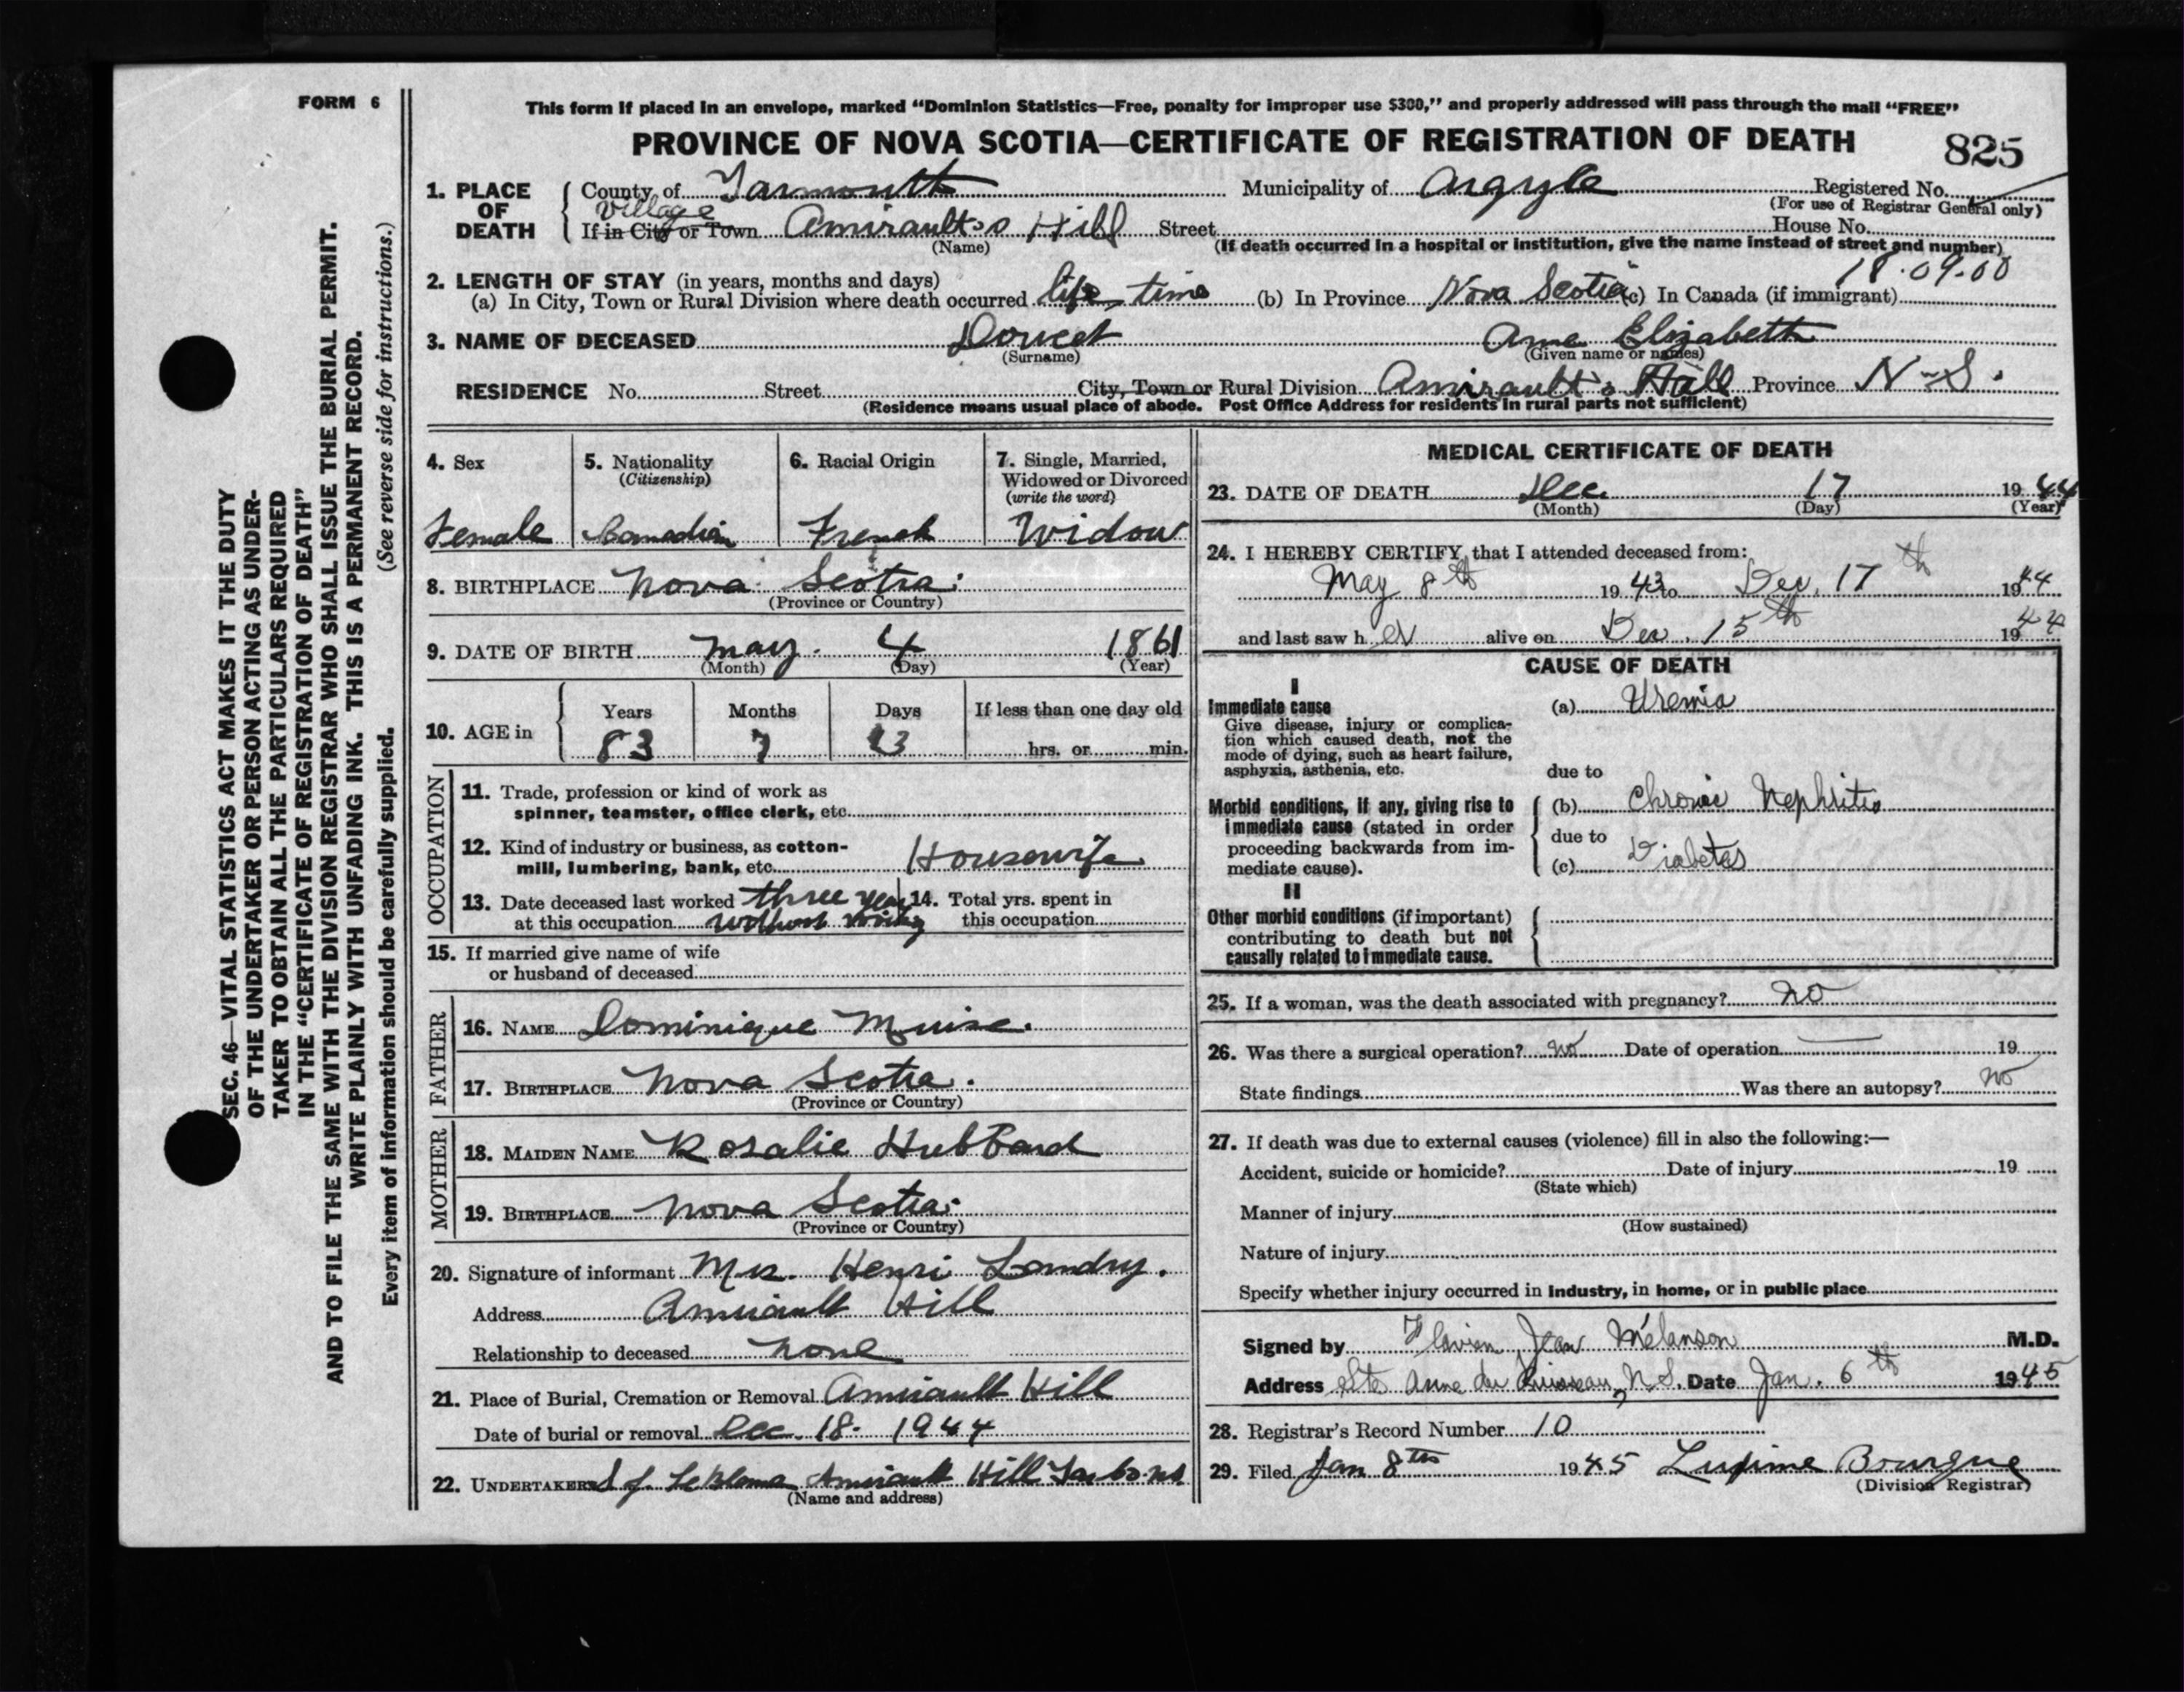 FORM 6
This form if placed in an envelope, marked “Dominion Statistics—Free, penalty for improper use $300,” and properly addressed will pass through the mail “FREE”
PROVINCE OF NOVA SCOTIA—CERTIFICATE OF REGISTRATION OF DEATH
825
1. PLACE OF DEATH
County of Yarmouth Municipality of Argyle Registered No.
(For use of Registrar General only)
Village
If in City or Town Amirault's Hill Street House No.
(Name) (If death occurred in a hospital or institution, give the name instead of street and number)
18.09.00
2. LENGTH OF STAY (in years, months and days)
(a) In City, Town or Rural Division where death occurred life time (b) In Province Nova Scotia (c) In Canada (if immigrant)
3. NAME OF DECEASED Doucet Anne Elizabeth
(Surname) (Given name or names)
RESIDENCE No. Street City, Town or Rural Division Amirault's Hill Province N-S.
(Residence means usual place of abode. Post Office Address for residents in rural parts not sufficient)
4. Sex 5. Nationality 6. Racial Origin 7. Single, Married,
(Citizenship) Widowed or Divorced
(write the word)
Female Canadian French Widow
8. BIRTHPLACE Nova Scotia
(Province or Country)
9. DATE OF BIRTH May 4 1861
(Month) (Day) (Year)
10. AGE in Years Months Days If less than one day old
83 7 13 hrs. or min.
OCCUPATION
11. Trade, profession or kind of work as
spinner, teamster, office clerk, etc.
12. Kind of industry or business, as cotton-
mill, lumbering, bank, etc. Housewife
13. Date deceased last worked three year 14. Total yrs. spent in
at this occupation without this occupation
15. If married give name of wife
or husband of deceased
FATHER
16. NAME Dominique Muise.
17. BIRTHPLACE Nova Scotia.
(Province or Country)
MOTHER
18. MAIDEN NAME Rosalie Hubbard
19. BIRTHPLACE Nova Scotia
(Province or Country)
20. Signature of informant Mrs. Henri Landry.
Address Amirault Hill
Relationship to deceased none
21. Place of Burial, Cremation or Removal Amirault Hill
Date of burial or removal Dec. 18. 1944
22. UNDERTAKER Amirault Hill
(Name and address)
MEDICAL CERTIFICATE OF DEATH
23. DATE OF DEATH Dec. 17 1944
(Month) (Day) (Year)
24. I HEREBY CERTIFY, that I attended deceased from:
May 8th 1943 to Dec. 17th 1944
and last saw her alive on Dec. 15th 1944
CAUSE OF DEATH
I
Immediate cause (a) Uremia
Give disease, injury or complica-
tion which caused death, not the
mode of dying, such as heart failure,
asphyxia, asthenia, etc.
due to
Morbid conditions, if any, giving rise to (b) Chronic Nephritis
immediate cause (stated in order due to
proceeding backwards from im-
mediate cause). (c) Diabetes
II
Other morbid conditions (if important)
contributing to death but not
causally related to immediate cause.
25. If a woman, was the death associated with pregnancy? no
26. Was there a surgical operation? no Date of operation 19
State findings Was there an autopsy? no
27. If death was due to external causes (violence) fill in also the following:—
Accident, suicide or homicide? Date of injury 19
(State which)
Manner of injury
(How sustained)
Nature of injury
Specify whether injury occurred in industry, in home, or in public place
Signed by Flavien Jean Mélanson M.D.
Address Ste Anne du Ruisseau, N.S. Date Jan. 6th 1945
28. Registrar's Record Number 10
29. Filed Jan 8th 1945 Bourque
(Division Registrar)
SEC. 46—VITAL STATISTICS ACT MAKES IT THE DUTY
OF THE UNDERTAKER OR PERSON ACTING AS UNDER-
TAKER TO OBTAIN ALL THE PARTICULARS REQUIRED
IN THE “CERTIFICATE OF REGISTRATION OF DEATH”
AND TO FILE THE SAME WITH THE DIVISION REGISTRAR WHO SHALL ISSUE THE BURIAL PERMIT.
WRITE PLAINLY WITH UNFADING INK. THIS IS A PERMANENT RECORD.
Every item of information should be carefully supplied. (See reverse side for instructions.)